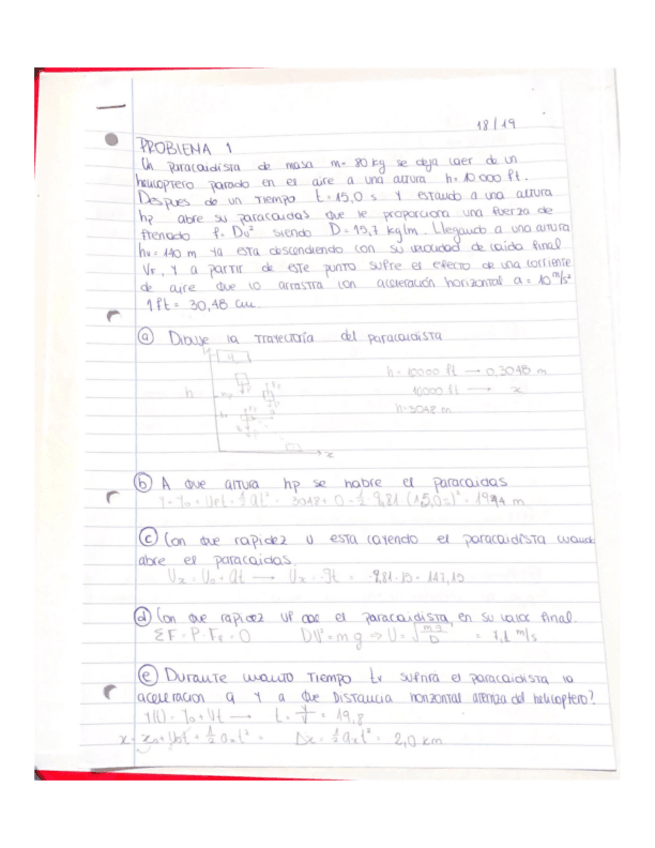 18/19
PROBLEMA 1
Un paracaidista de masa m= 80 kg se deja caer de un
helicoptero parado en el aire a una altura h= 10 000 ft.
Despues de un tiempo t=15,0 s y estando a una altura
hp abre su paracaidas que le proporciona una fuerza de
frenado f= Dv² siendo D= 15,7 kg/m. Llegando a una altura
hv= 140 m ya esta descendiendo con su velocidad de caida final
VF, y a partir de este punto sufre el efecto de una corriente
de aire que lo arrastra con aceleración horizontal a= 10 m/s²
1 ft = 30,48 cm.
a Dibuje la trayectoria del paracaidista
h= 10000 ft → 0,3048 m
10000 ft → x
h=3048 m
h
x
b A que altura hp se habre el paracaidas
Y= Y₀ + V₀t - ½ at² = 3048 + 0 - ½ 9,81 (15,0)² = 1944 m
c Con que rapidez v esta cayendo el paracaidista cuando
abre el paracaidas.
Vx = V₀ + at → Vx = -gt = -9,81·15 = 147,15
d Con que rapidez VF cae el paracaidista, en su valor final.
ΣF = P - Fr = 0 DV² = mg ⇒ V = √mg/D = 7,1 m/s
e Durante cuanto tiempo tv sufrirá el paracaidista la
aceleracion a y a que distancia horizontal aterriza del helicoptero?
Y(t) = Y₀ + Vt → t = Y/V = 19,8
x = x₀ + V₀t + ½ axt² = Δx = ½ axt² = 2,0 km